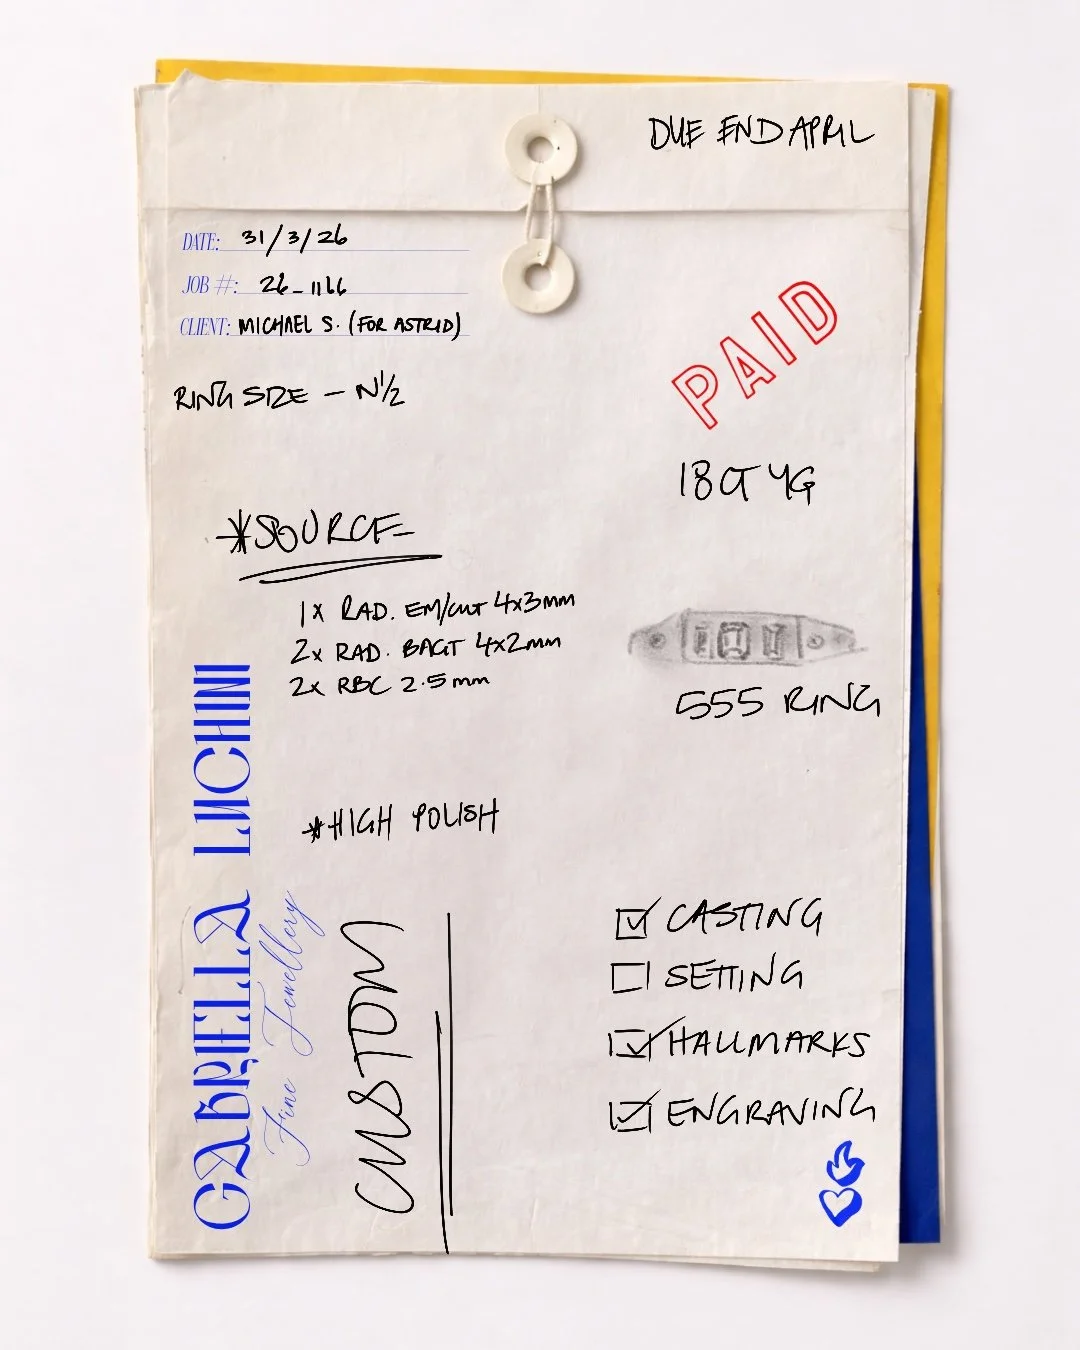 DUE END APRIL
DATE: 31/3/26
JOB #: 26-1166
CLIENT: MICHAEL S. (FOR ASTRID)
PAID
RING SIZE - N 1/2
18CT YG
*SOURCE
1x RAD. EM/CUT 4x3mm
2x RAD. BAGT 4x2mm
2x RBC 2.5mm
555 RING
*HIGH POLISH
GABRIELLA LUCHINI
Fine Jewellery
CUSTOM
CASTING
SETTING
HALLMARKS
ENGRAVING